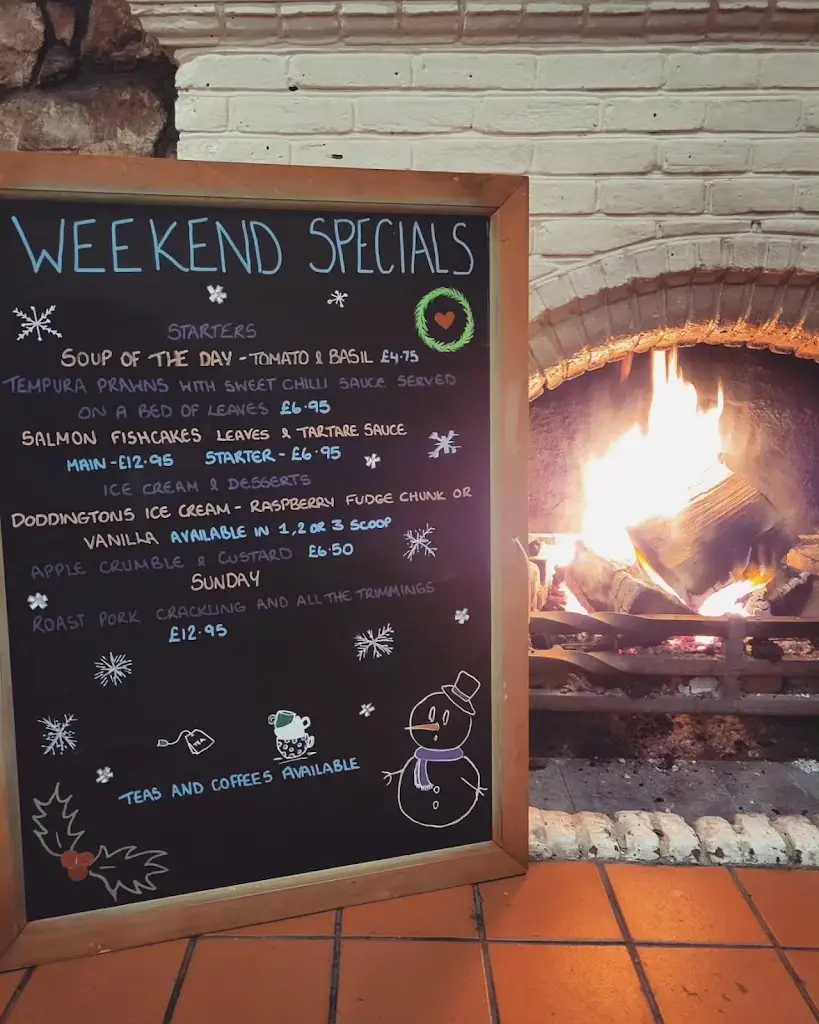 WEEKEND SPECIALS
STARTERS
SOUP OF THE DAY - TOMATO & BASIL £4.75
TEMPURA PRAWNS WITH SWEET CHILLI SAUCE SERVED
ON A BED OF LEAVES £6.95
SALMON FISHCAKES LEAVES & TARTARE SAUCE
MAIN - £12.95 STARTER - £6.95
ICE CREAM & DESSERTS
DODDINGTONS ICE CREAM - RASPBERRY FUDGE CHUNK OR
VANILLA AVAILABLE IN 1, 2 OR 3 SCOOP
APPLE CRUMBLE & CUSTARD £6.50
SUNDAY
ROAST PORK CRACKLING AND ALL THE TRIMMINGS
£12.95
TEA
TEAS AND COFFEES AVAILABLE